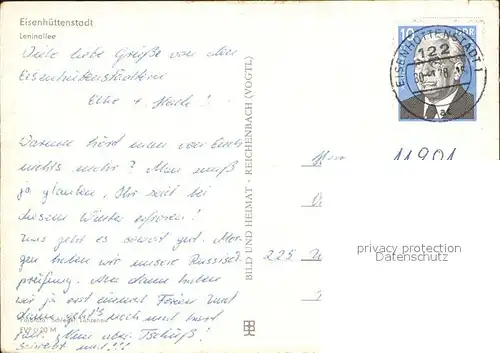 Eisenhüttenstadt
Leninallee
Viele liebe Grüße von den
Eisenhüttenstädtern
Elke +
Warum hört man von Euch
nichts mehr? Man muß
ja glauben, Ihr seid bei
diesem Winter erfroren!
Uns geht es soweit gut. Mor-
gen haben wir unsere Russisch
prüfung. Aber dann haben
wir ja erst einmal Ferien und
dann geht's noch mal
Nun aber Tschüß!
schreibt mal!!!
EVP 0,20 M
BILD UND HEIMAT · REICHENBACH (VOGTL)
10
DDR
EISENHÜTTENSTADT 1
122
11901
225
privacy protection
Datenschutz